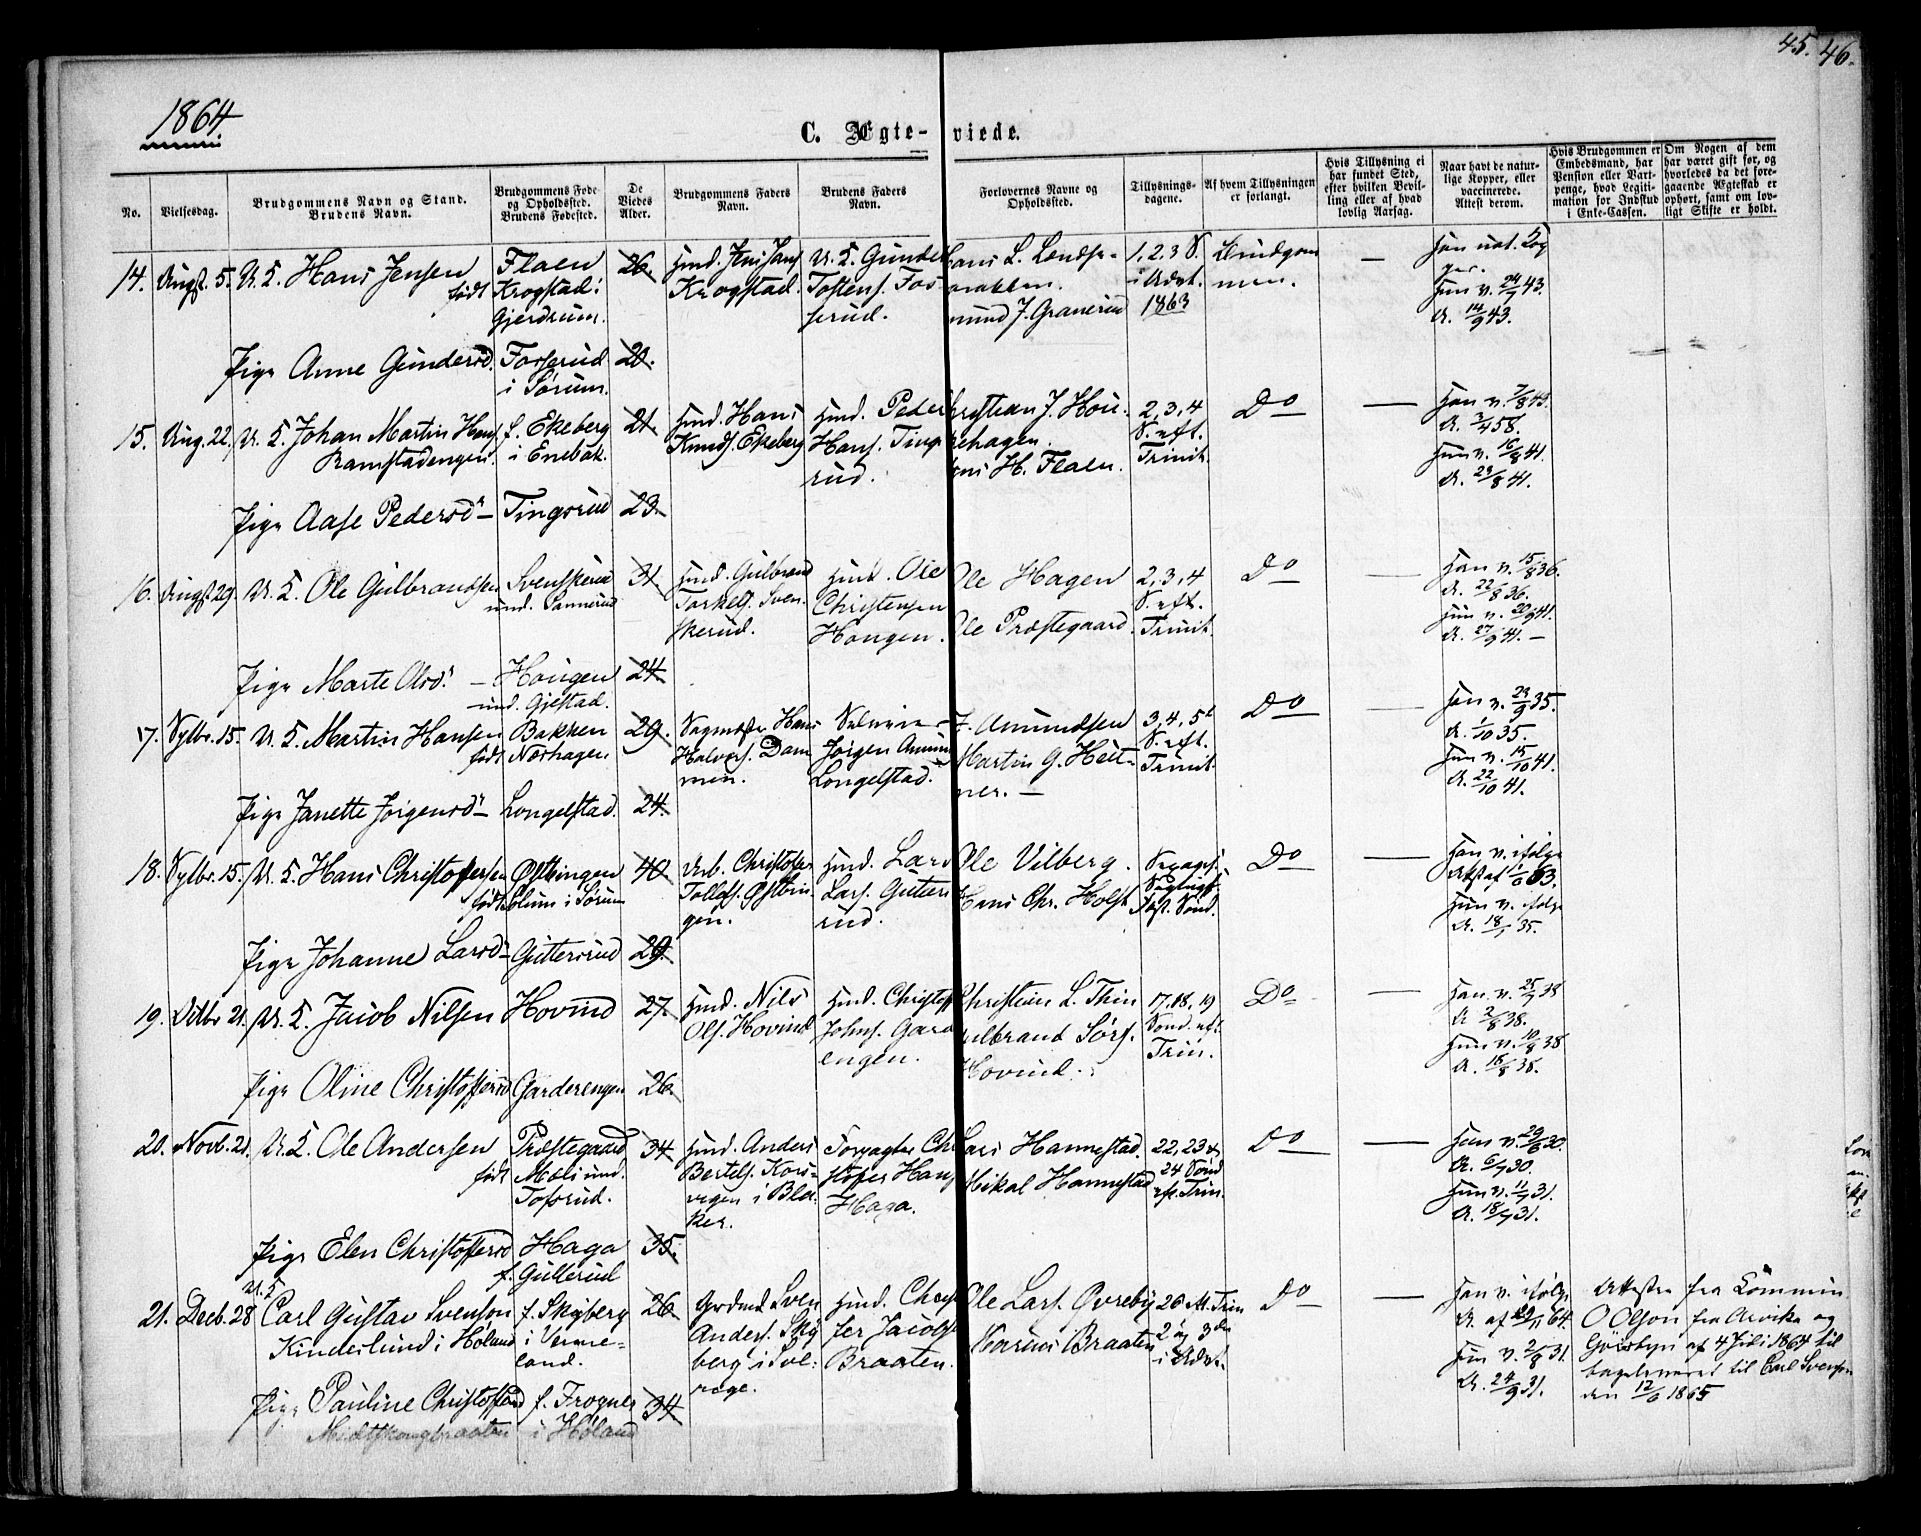 45. 46.
1864.
C. Ægteviede.
No.
Vielsesdag.
Brudgommens Navn og Stand.
Brudens Navn.
Brudgommens Føde-
og Opholdssted.
Brudens Fødested.
De
Viedes
Alder.
Brudgommens Faders
Navn.
Brudens Faders
Navn.
Forlovernes Navne og
Opholdssted.
Tillysnings-
dagene.
Af hvem Tillysningen
er forlangt.
Hvis Tillysning ei
har fundet Sted,
efter hvilken Bevil-
ling eller af hvad
lovlig Aarsag.
Naar havt de natur-
lige Kopper, eller
vaccinerede.
Attest derom.
Hvis Brudgommen er
Embedsmand, har
Pension eller Vart-
penge, hvad Legiti-
mation for Indskud
i Enke-Cassen.
Om Nogen af dem
har været gift før, og
hvorledes da det fore-
gaaende Ægteskab er
ophørt, samt om lov-
ligt Skifte er holdt.
14. Augst. 5. U. K. Hans Jensen
født
Flaen
Krogstad i
Gjerdrum.
26.
Huusd. Jens Jans.
Krogstad.
U. K. Gunder
Tostens. Fos-
serud.
Hans L. Lendse-
bakken.
mund J. Granerud
1, 2, 3 S.
i Advt.
1863
Brudgom
men.
—
Hun v. 24/7 43.
A. 14/9 43.
Pige Anne Gundersd.
Fosserud
i Sørum.
20.
15. Aug. 22. U. K. Johan Martin Hans.
Ramstadengen.
f. Ekeberg
i Enebak.
21.
Huusd. Hans
Knuds. Ekeberg
Huusd. Peder
Hans. Tings
rud.
Christian J. Hou-
gehagen.
Hans H. Flaen.
2, 3, 4
S. eft.
Trinit.
Do
—
Han v. 7/8 43.
A. 3/4 58.
Hun v. 16/8 41.
A. 23/8 41.
Pige Aase Pedersd. –
Tingsrud
23.
16. Augst 29. U. K. Ole Gulbrandsen
Svenskerud
31.
Huusd. Gulbrand
Torkels. Sven-
skerud.
Huusd. Ole
Christensen
Hougen.
Ole Hagen
Ole Præstegaard.
2, 3, 4
S. eft.
Trinit.
Do
—
Han v. 15/8 36.
A. 22/8 36.
Hun v. 20/9 41.
A. 27/9 41. –
Pige Marte Olsd. –
Hougen
und. Gjestad.
24.
17. Septbr. 15. U. K. Martin Hansen
født
Bakken
Norhagen
29.
Hans
Halvors. Dam
men.
Jørgen Amund
Longelstad.
J. Amundsen
Martin G. Heit-
ner. –
3, 4, 5te
S. eft.
Trinit.
Do
—
Han v. 23/9 35.
A. 1/10 35.
Hun v. 15/10 41.
A. 22/10 41.
Pige Janette Jørgensd. –
Longelstad.
24.
18. Septbr. 15. U. K. Hans Christoffersen
født
Østbingen
Blum i Sørum
40.
Arb. Christoffer
Tollefs. Østbin-
gen.
Huusd. Lars
Lars. Gutters
rud.
Ole Vilberg.
Hans Chr. Holst
Do
—
Han v. ifølge
Hun v. ifølge
A. 18/7 35.
Pige Johanne Larsd. –
Guttersrud
29.
19. Octbr 21. U. K. Jacob Nilsen
Hovind
27.
Huusd. Nils
Ols. Hovind
Huusd. Christoff
Johns. Gard
engen.
Christian L. Thin
Gulbrand Sørs.
Hovind.
17. 18, 19
Sond. eft.
Trin.
Do
—
Han v. 25/7 38
A. 2/8 38.
Hun v. 10/8 38
A. 16/8 38.
Pige Oline Christoffersd.
Garderengen
26.
20. Novb. 21. U. K. Ole Andersen
født
Præstegaard
Moli und.
Tofsrud.
34.
Huusd. Anders
Bertels. Kors-
vegen i Bla-
ker.
Forpagter Chri
stoffer Hans
Haga.
Lars Hannestad.
Mikal Hannestad
22, 23 &
24 Sond
eft. Trin.
Do
—
Han v. 29/6 30.
A. 6/7 30.
Hun v. 11/7 31.
A. 18/7 31.
Pige Elen Christoffersd.
Haga
f. Gullerud
35.
21. Decb. 28 U. K.
Carl Gustav Svenson
Kinderlund i Høland
f. Skyberg
i Verme-
land.
26.
Grdmd. Sven
Anders. Sky
berg i Sve-
rige.
Huusd. Christof
fer Jacobs.
Braaten.
Ole Lars. Øvreby
Marius Braaten
26 M. Trin
2 og 3die
i Advt.
Do
—
Han v. ifølge
A. af 29/11 64.
Hun v. 2/8 31.
A. 24/9 31.
Attester fra Kommin
O Olson fra Arvika og
af 4 Juli 1864 til
bageleveret til Carl Svenson
den 12/6 1865
Pige Pauline Christoffersd.
Midtskougbraaten
f. Frogner
i Høland
34.